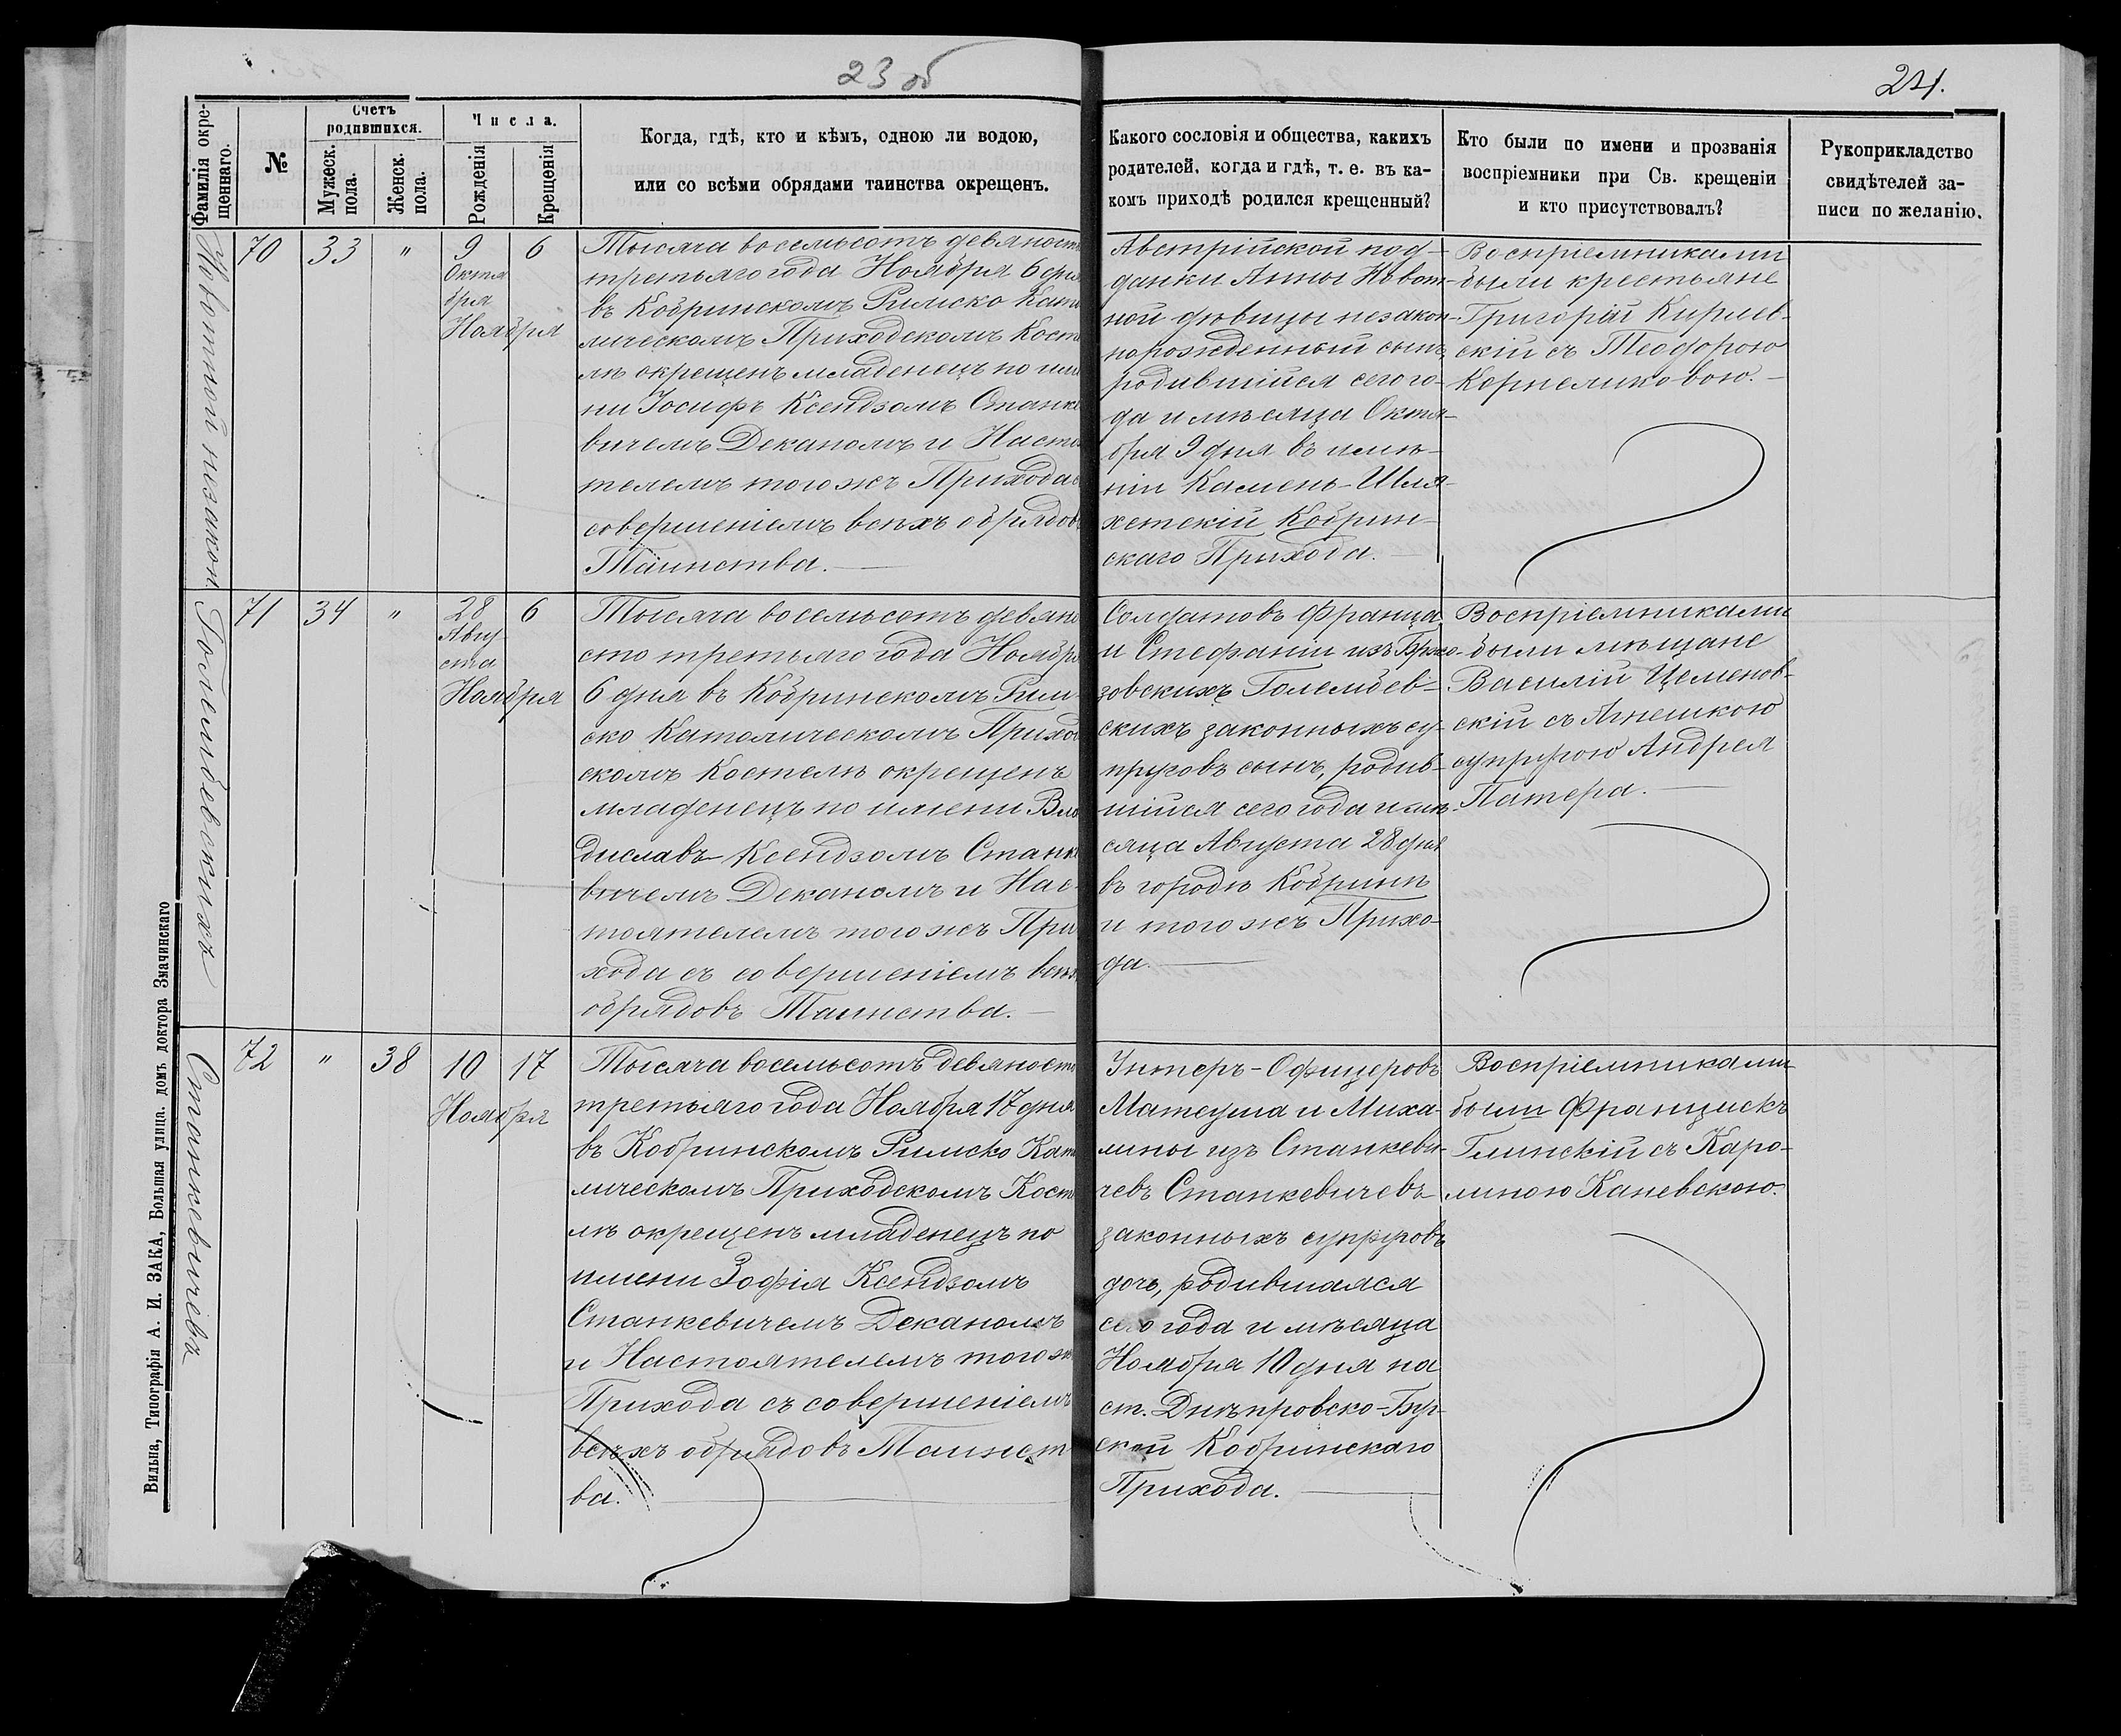 23 об
24.
Фамилія окре-
щеннаго.
№
Счетъ
родившихся.
Мужеск.
пола.
Женск.
пола.
Числа.
Рожденія
Крещенія
Когда, гдѣ, кто и кѣмъ, одною ли водою,
или со всѣми обрядами таинства окрещенъ.
Какого сословія и общества, какихъ
родителей, когда и гдѣ, т. е. въ ка-
комъ приходѣ родился крещенный?
Кто были по имени и прозванія
воспріемники при Св. крещеніи
и кто присутствовалъ?
Рукоприкладство
свидѣтелей за-
писи по желанію.
незакон.
70
33
"
9
Октя
бря
6
Ноября
Тысяча восемьсотъ девяност
третьяго года Ноября 6 дня
въ Кобринскомъ Римско Като
лическомъ Приходскомъ Косте
лѣ окрещенъ младенецъ по име
ни Іосифъ Ксендзомъ Станке
вичемъ Деканомъ и Насто
телемъ того жъ Прихода с
совершеніемъ всѣхъ обрядов
Таинства.
Австрійской под-
данки Анны
ной дѣвицы незакон-
норожденный сынъ
родившійся сего го-
да и мѣсяца Октя-
бря 9 дня въ имѣ-
ніи Камень-Шля-
хетскій Кобрин-
скаго Прихода.
Воспріемниками
были крестьяне
Григорій Кирилев-
скій съ Теодорою
Корнелюковою.
Голембевскихъ
71
34
"
28
Авгу
ста
6
Ноября
Тысяча восемьсотъ девяно
сто третьяго года Ноября
6 дня въ Кобринскомъ Рим-
ско Католическомъ Приход
скомъ Костелѣ окрещенъ
младенецъ по имени Вла
диславъ Ксендзомъ Станке
вичемъ Деканомъ и Нас-
тоятелемъ того жъ При
хода съ совершеніемъ всѣх
обрядовъ Таинства.
Солдатовъ Франца
и Стефаніи изъ Брж
зовскихъ Голембев-
скихъ законныхъ су-
пруговъ сынъ, родив-
шійся сего года и мѣ-
сяца Августа 28 дня
въ городѣ Кобринѣ
и того жъ Прихо-
да.
Воспріемниками
были мѣщане
Василій Цеменов-
скій съ Агнешкою
супругою Андрея
Патера.
Станкевичева
72
"
38
10
17
Ноября
Тысяча восемьсотъ девяност
третьяго года Ноября 17 дня
въ Кобринскомъ Римско Като
лическомъ Приходскомъ Косте
лѣ окрещенъ младенецъ по
имени Зофія Ксендзомъ
Станкевичемъ Деканомъ
и Настоятелемъ того ж
Прихода съ совершеніемъ
всѣхъ обрядовъ Таинст
ва.
Унтеръ-Офицеровъ
Матеуша и Миха-
лины изъ Станкеви-
чевъ Станкевичевъ
законныхъ супруговъ
дочь, родившаяся
сего года и мѣсяца
Ноября 10 дня на
ст. Днѣпровско-Буг-
ской Кобринскаго
Прихода.
Воспріемниками
были Францискъ
Глинскій съ Каро-
линою Каневскою.
Вильна, Типографія А. И. ЗАКА, Большая улица. домъ доктора Змачинскаго